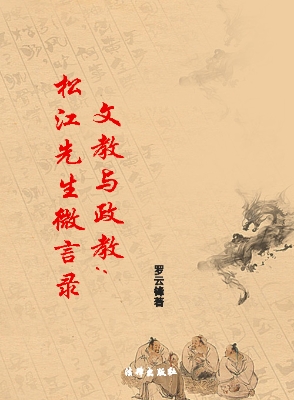 文教与政教：
松江先生微言录
罗云锋著
出版社